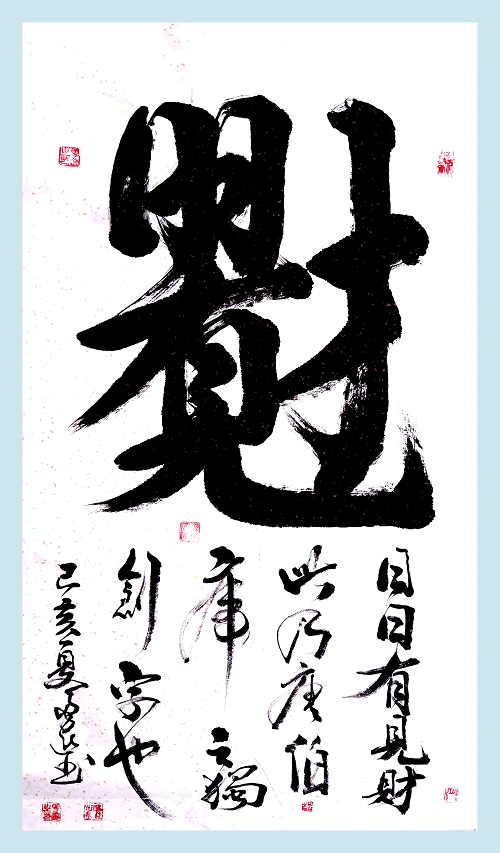 日日有見財
此乃唐伯
虎之獨
創字也
己亥夏书